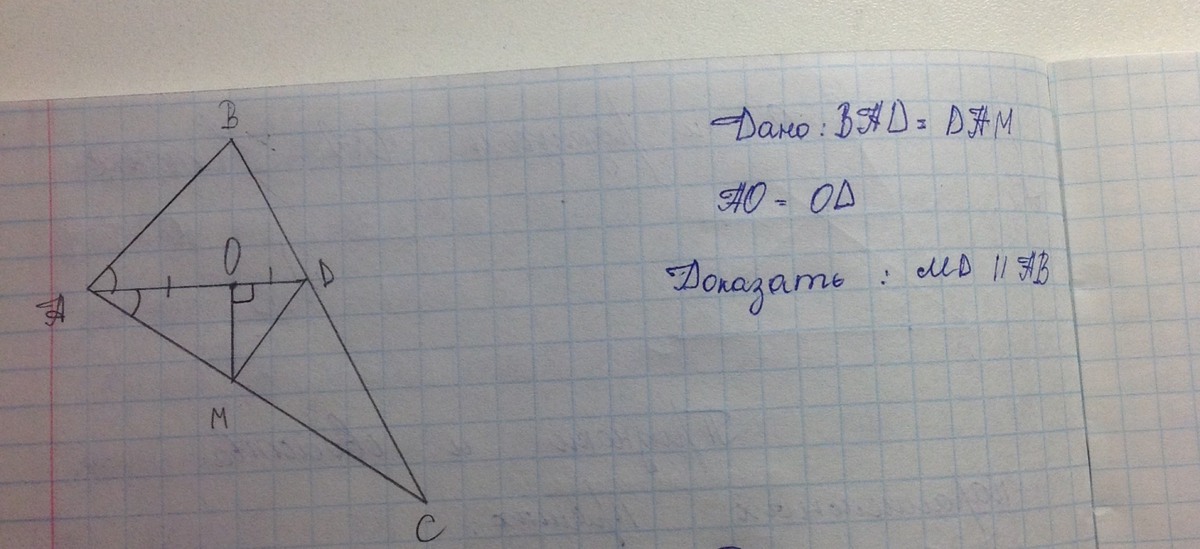 B
Дано: BAD = DAM
AO = OD
O
D
A
Доказать : MD || AB
M
C